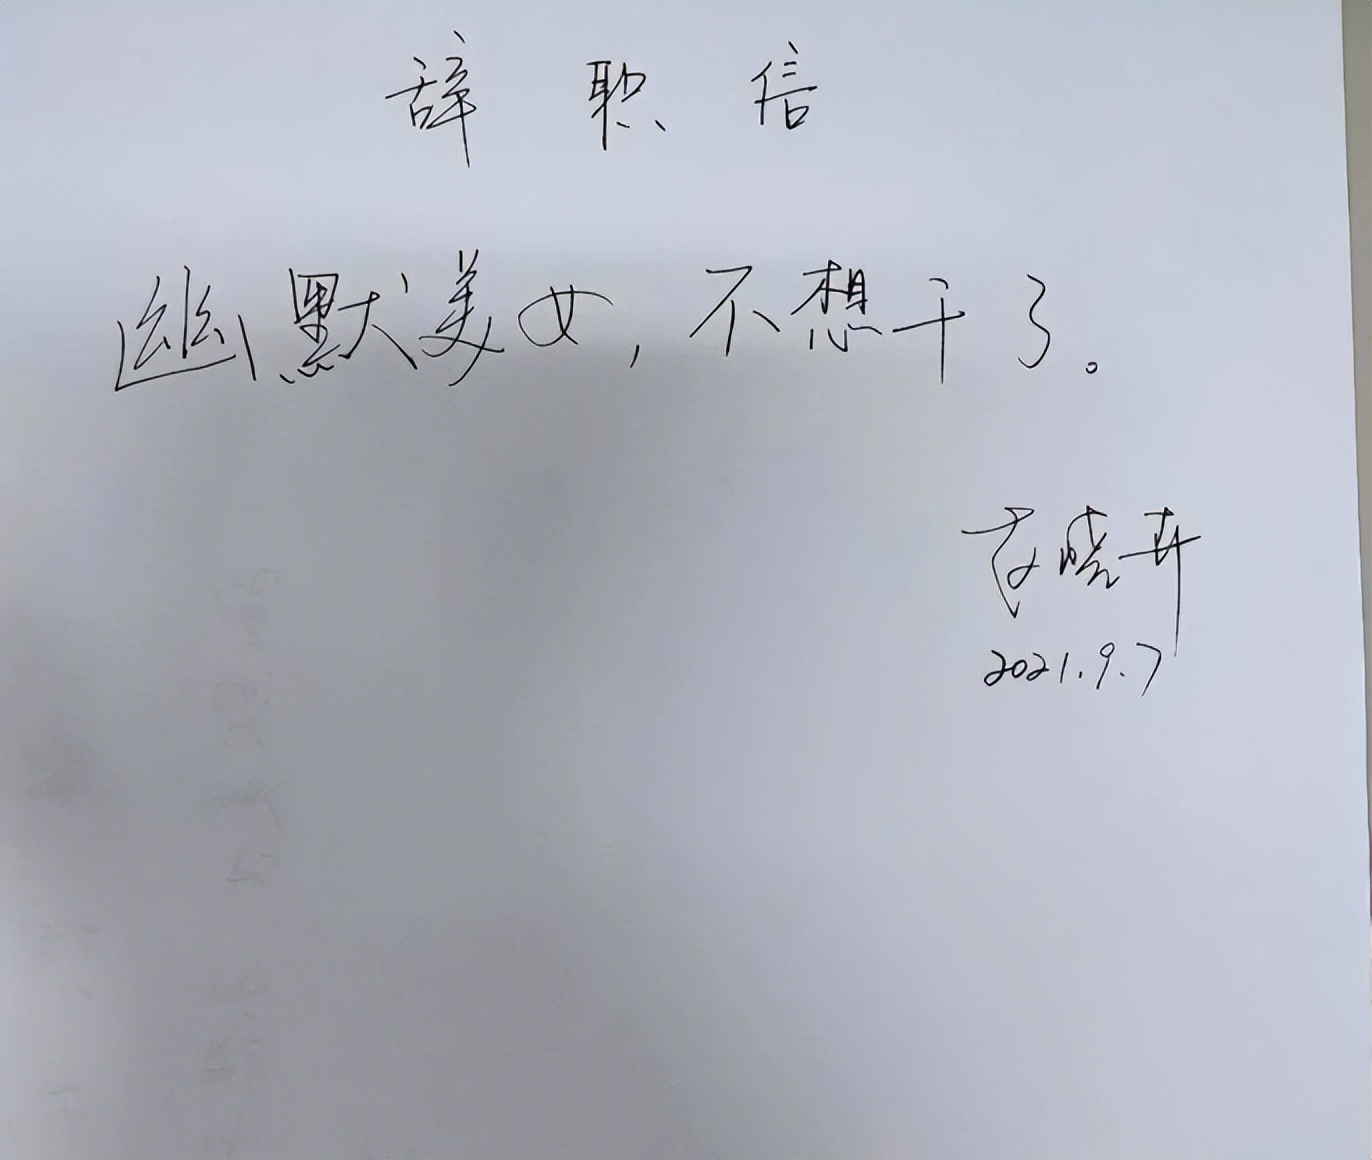 辞职信
幽默美女,不想干了。
晓卉
2021.9.7